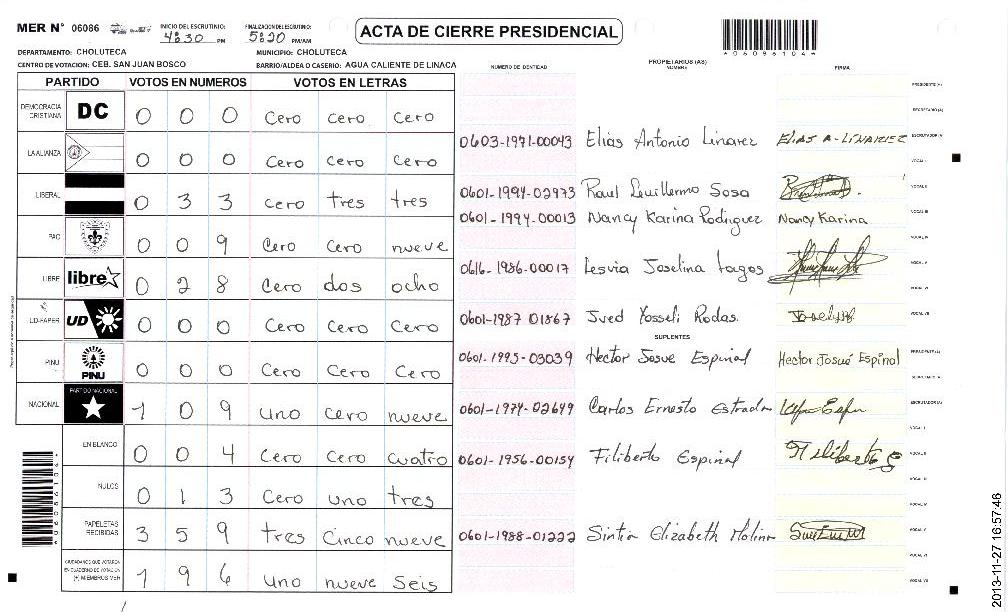 MER N° 06086 INICIO DEL ESCRUTINIO: 4:30 PM FINALIZACION DEL ESCRUTINIO: 5:20 PM/AM ACTA DE CIERRE PRESIDENCIAL
DEPARTAMENTO: CHOLUTECA MUNICIPIO: CHOLUTECA
CENTRO DE VOTACION: CEB. SAN JUAN BOSCO BARRIO/ALDEA O CASERIO: AGUA CALIENTE DE LINACA
NUMERO DE IDENTIDAD PROPIETARIOS (AS) NOMBRE FIRMA
PARTIDO VOTOS EN NUMEROS VOTOS EN LETRAS
DEMOCRACIA CRISTIANA DC 0 0 0 Cero cero Cero
0603-1971-00043 Elias Antonio Linarez ELIAS A-LINAREZ
LA ALIANZA 0 0 0 Cero Cero Cero
LIBERAL 0 3 3 cero tres tres
0601-1994-02973 Raul Guillermo Sosa
0601-1994-00013 Nancy Karina Rodriguez Nancy Karina
PAC 0 0 9 Cero Cero nueve
0616-1986-00017 Lesvia Joselina Lagos
LIBRE libre 0 2 8 Cero dos ocho
UD-FAPER UD 0 0 0 Cero Cero Cero
0601-1987 01867 Jved Yosseli Rodas.
SUPLENTES
PINU PINU 0 0 0 Cero Cero Cero
0601-1995-03039 Hector Josue Espinal Hector Josué Espinal
NACIONAL PARTIDO NACIONAL 1 0 9 uno Cero nueve
0601-1974-02649 Carlos Ernesto Estrada
EN BLANCO 0 0 4 Cero Cero cuatro
0601-1956-00154 Filiberto Espinal Filiberto E
NULOS 0 1 3 Cero uno tres
PAPELETAS RECIBIDAS 3 5 9 tres Cinco nueve
0601-1988-01222 Sintia Elizabeth Molina
CIUDADANOS QUE VOTARON EN CUADERNO DE VOTACION (+) MIEMBROS MER 1 9 6 uno nueve Seis
2013-11-27 16:57:46